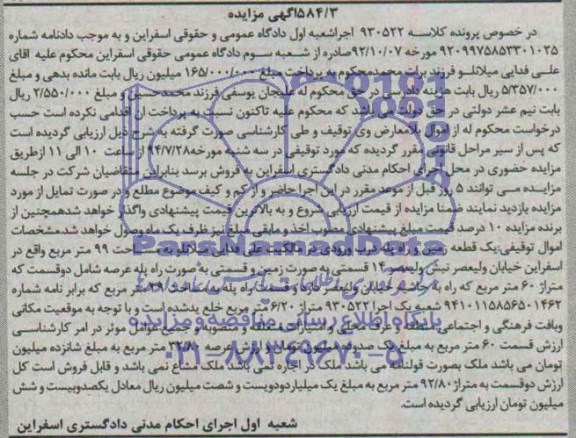 ۵۸۴/۳اگهی مزایده
در خصوص پرونده کلاسه ۹۳۰۵۲۲ اجراشعبه اول دادگاه عمومی و حقوقی اسفراین و به موجب دادنامه شماره
۹۲۰۹۹۷۵۸۵۳۳۰۱۰۲۵ مورخه ۹۲/۱۰/۰۷صادره از شعبه سوم دادگاه عمومی حقوقی اسفراین محکوم علیه اقای
علی فدایی میلانلو فرزند برات محمدمحکوم به پرداخت مبلغ ۱۶۵/۰۰۰/۰۰۰ میلیون ریال بابت مانده بدهی و مبلغ
۵/۳۵۷/۰۰۰ ریال بابت هزینه دادرسی در حق محکوم له علیجان یوسفی فرزند محمدحسین و مبلغ ۲/۵۵۰/۰۰۰ ریال
بابت نیم عشر دولتی در حق دولت می باشد که محکوم علیه تاکنون نسبت به پرداخت ان اقدامی نکرده است حسب
درخواست محکوم له از اموال بلامعارض وی توقیف و طی کارشناسی صورت گرفته به شرح ذیل ارزیابی گردیده است
که پس از سیر مراحل قانونی مقرر گردیده که مورد توقیفی در سه شنبه مورخه۹۴/۷/۲۸از ساعت ۱۰ الی ۱۱ ازطریق
مزایده حضوری در محل اجرای احکام مدنی دادگستری اسفراین به فروش برسد بنابراین متقاضیان شرکت در جلسه
مزایده می توانند ۵ روز قبل از موعد مقرر در این اجرا حاضر و از کم و کیف موضوع مطلع و در صورت تمایل از مورد
مزایده بازدید نمایند ضمنا مزایده از قیمت ارزیابی شروع و به بالاترین قیمت پیشنهادی واگذار خواهد شدهمچنین از
برنده مزایده ۱۰ درصد قیمت مبلغ پیشنهادی مصوب اخذ و مابقی مبلغ نیز ظرف یک ماه وصول خواهد شد مشخصات
اموال توقیفی:یک قطعه زمین و راه پله درب ورودی در مالکیت علی فدایی میلانلو به مساحت ۹۹ متر مربع واقع در
اسفراین خیابان ولیعصر نبش ولیعصر۱۴ قسمتی به صورت زمین و قسمتی به صورت راه پله عرصه شامل دوقسمت که
متراژ ۶۰ متر مربع که راه به حاشیه خیابان ولیعصر دارد و قسمت راه پله به مساحت ۳۹ متر مربع که برابر نامه شماره
۹۴۱۰۱۱۵۸۵۶۵۰۱۴۶۲ شعبه یک اجرا ۹۳۰۵۲۲ متراژ ۶/۲۰ متر مربع خلع یدشده است و با توجه به موقعیت مکانی
وبافت فرهنگی و اجتماعی منطقه و عرف محلی و سایر عوامل موثر در امر کارشناسی
ارزش قسمت ۶۰ متر مربع به مبلغ یک صد میلیون تومان و ارزش عرصه ۳۲/۸۰ متر مربع به مبلغ شانزده میلیون
تومان می باشد ملک بصورت قولنامه می باشد ملک در اجاره نمی باشد ملک مشاع نمی باشد و قابل فروش است کل
ارزش دوقسمت به متراژ ۹۲/۸۰ متر مربع به مبلغ یک میلیاردودویست و شصت میلیون ریال معادل یکصدوبیست و شش
میلیون تومان ارزیابی گردیده است.
شعبه اول اجرای احکام مدنی دادگستری اسفراین
ParsNamadData
پایگاه اطلاع رسانی مناقصه و مزایده
۰۲۱-۸۸۳۴۹۶۷۰-۵